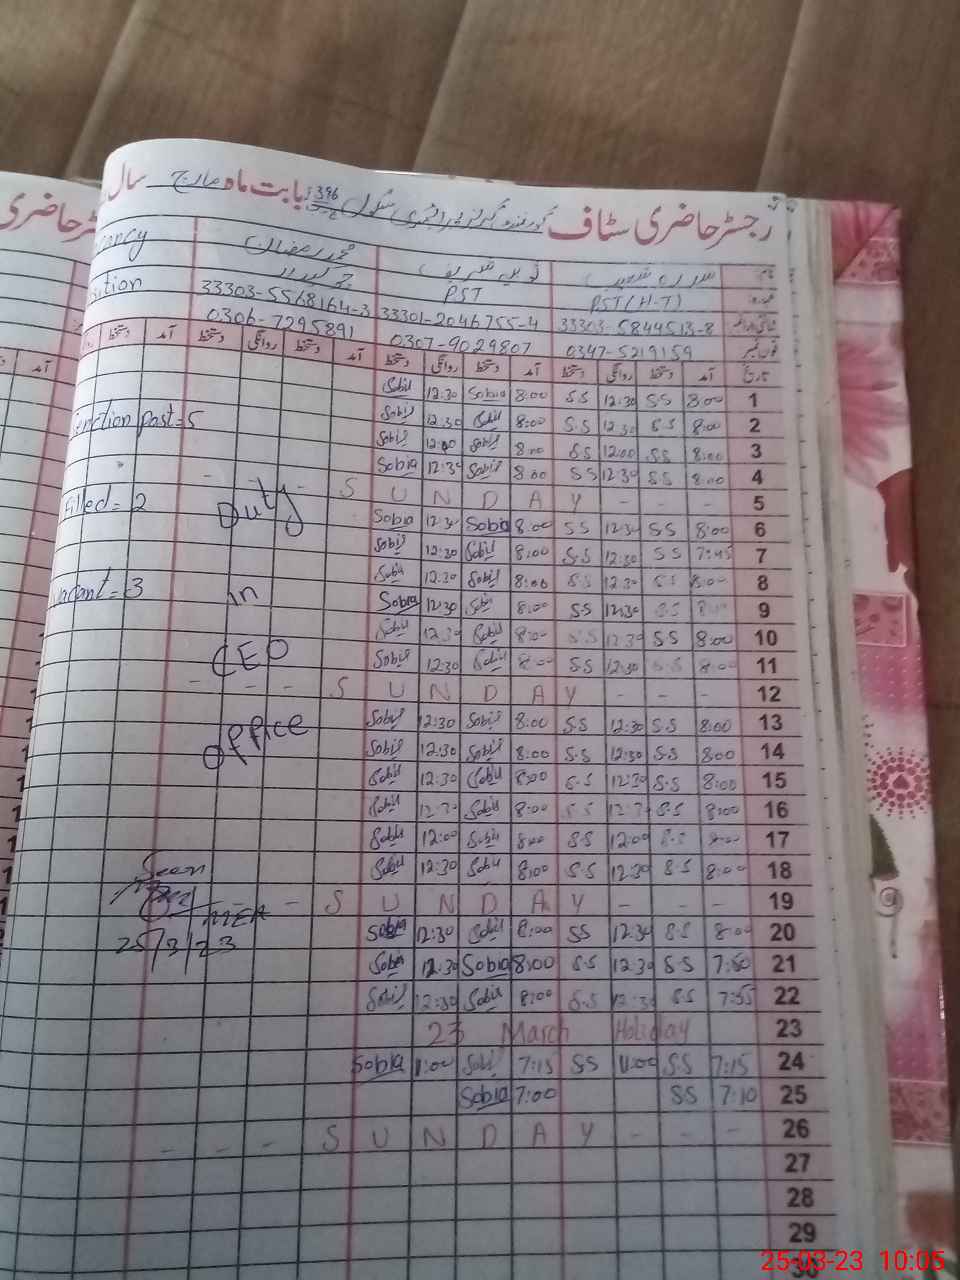 رجسٹر حاضری سٹاف گورنمنٹ گرلز پرائمری سکول 396 ج ب بابت ماہ مارچ سال
نام سدرہ شعیب ثوبیہ شریف محمد رمضان ancy
عہدہ PST (H-T) PST چوکیدار sition
33303-5844513-8 33301-2046755-4 33303-5568164-3
فون نمبر 0347-5219159 0307-9029807 0306-7295891
تاریخ آمد دستخط روانگی دستخط آمد دستخط روانگی دستخط آمد دستخط روانگی دستخط آمد
1 8:00 SS 12:30 S.S 8:00 Sobia 12:30 Sobia
2 8:00 S.S 12:30 S.S 8:00 Sobia 12:30 Sobia nction post=5
3 8:00 SS 12:00 S.S 8:00 Sobia 12:00 Sobia
4 8:00 SS 12:30 SS 8:00 Sobia 12:30 Sobia
5 - - - S U N D A Y - - -
Duty
Filled= 2
6 8:00 SS 12:30 SS 8:00 Sobia 12:30 Sobia
7 7:45 SS 12:30 S.S 8:00 Sobia 12:30 Sobia
8 8:00 S.S 12:30 S.S 8:00 Sobia 12:30 Sobia
in
vacant= 3
9 S.S 12:30 S.S 8:00 Sobia 12:30 Sobia
10 8:00 SS 12:30 S.S 8:00 Sobia 12:30 Sobia
11 8:00 S.S 12:30 SS 8:00 Sobia 12:30 Sobia
CEO
12 - - - S U N D A Y - - -
13 8:00 S.S 12:30 S.S 8:00 Sobia 12:30 Sobia
office
14 8:00 S.S 12:30 S.S 8:00 Sobia 12:30 Sobia
15 8:00 S.S 12:30 S.S 8:00 Sobia 12:30 Sobia
16 8:00 S.S 12:30 S.S 8:00 Sobia 12:30 Sobia
17 8:00 S.S 12:00 S.S 8:00 Sobia 12:00 Sobia
18 8:00 S.S 12:30 S.S 8:00 Sobia 12:30 Sobia
Seen
19 - - - S U N D A Y - -
MEA
20 8:00 S.S 12:30 SS 8:00 Sobia 12:30 Sobia
25/3/23
21 7:50 S.S 12:30 S.S 8:00 Sobia 12:30 Sobia
22 7:55 S.S 12:30 S.S 8:00 Sobia 12:30 Sobia
23 23 March Holiday
24 7:15 S.S 11:00 SS 7:15 Sobia 11:00 Sobia
25 7:10 SS 7:00 Sobia
26 - - - S U N D A Y - - -
27
28
29
30
25-03-23 10:05